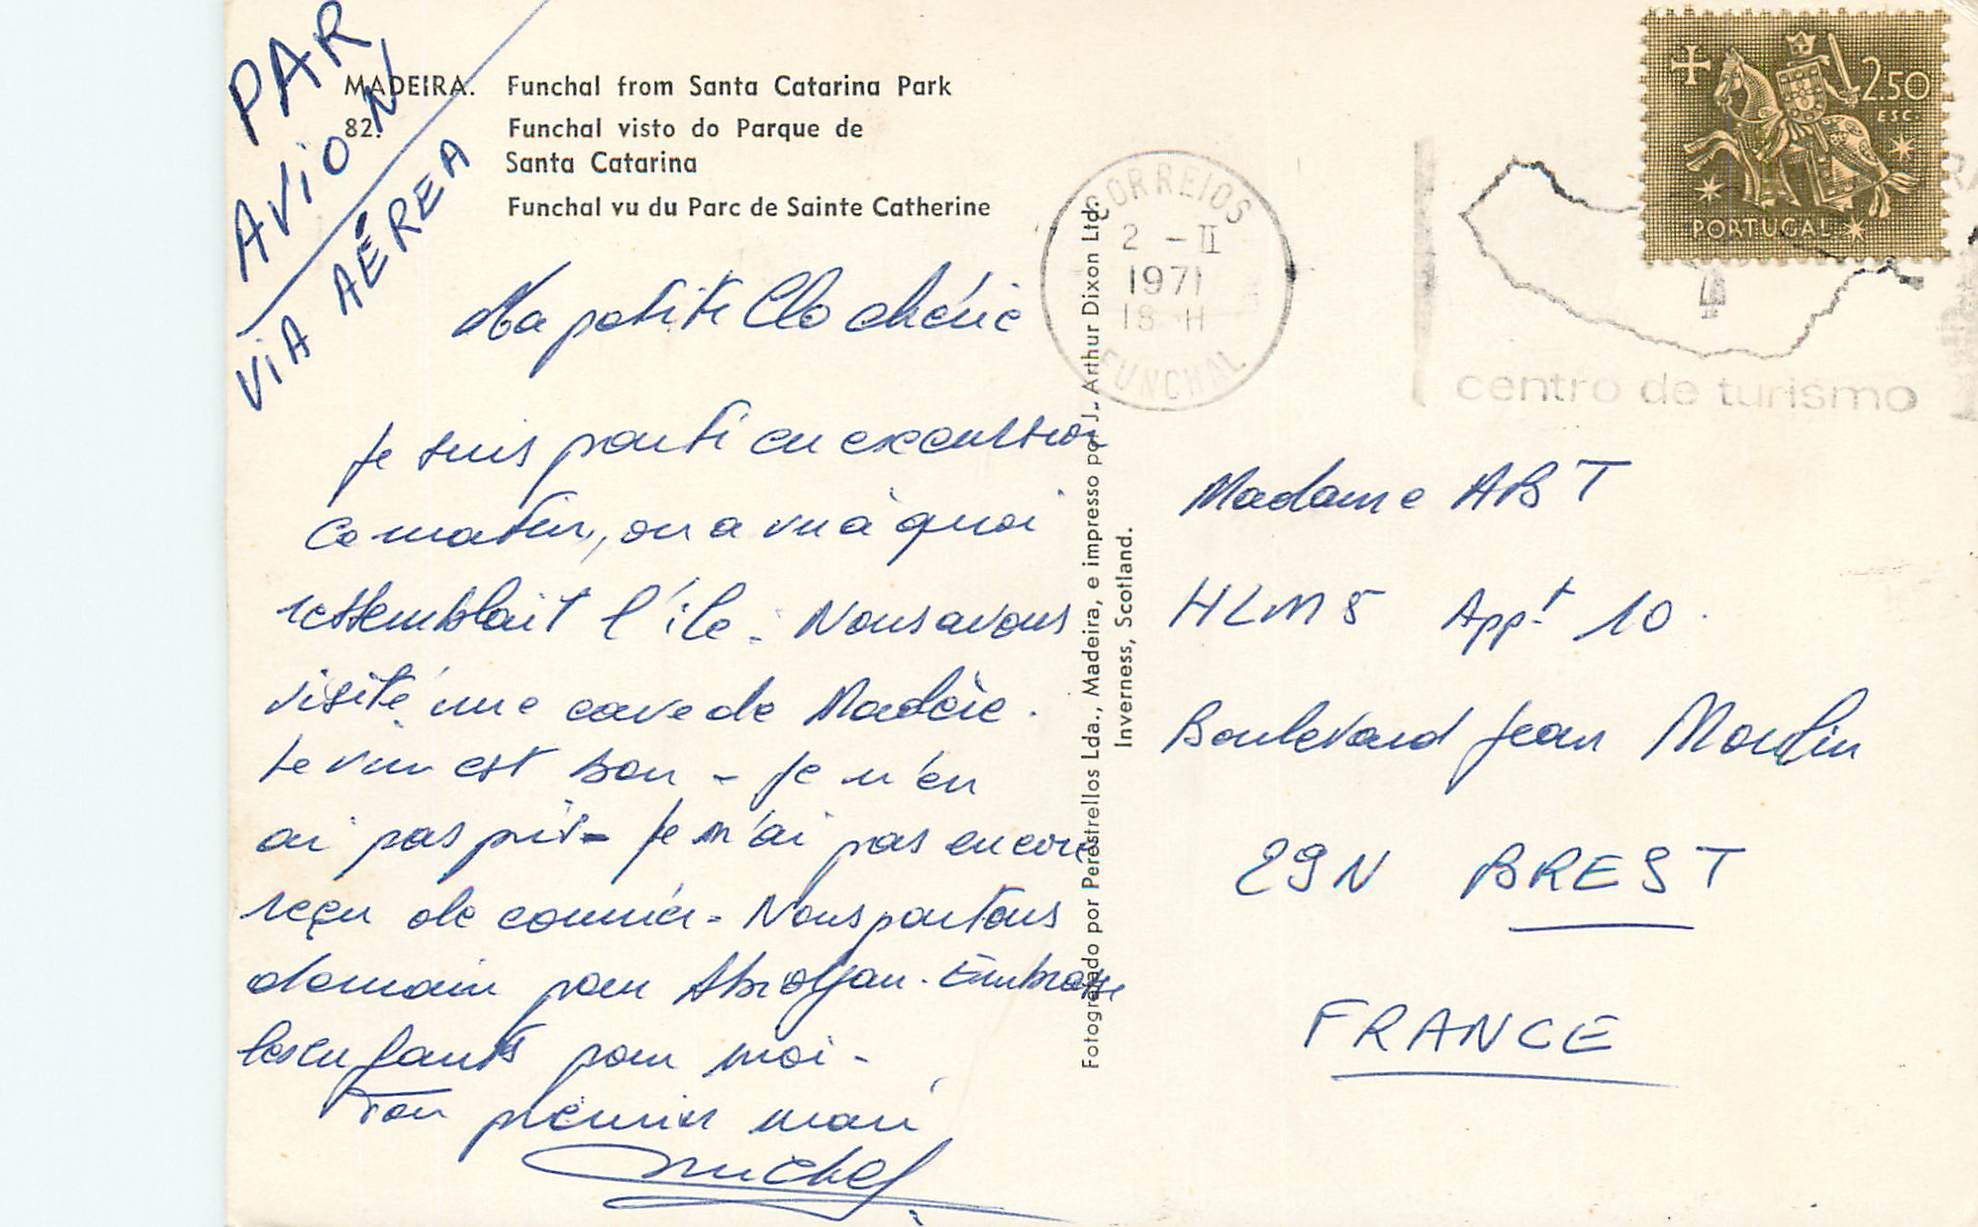 PAR
AVION
VIA AÉREA
MADEIRA. Funchal from Santa Catarina Park
82. Funchal visto do Parque de
Santa Catarina
Funchal vu du Parc de Sainte Catherine
Ma petite Clo chérie
Je suis parti en excursion
ce matin, on a vu à quoi
ressemblait l'île. Nous avons
visité une cave de Madère.
Le vin est bon - Je n'en
ai pas pris - Je n'ai pas encore
reçu de courrier - Nous partons
demain pour Abidjan. Embrasse
les enfants pour moi -
Ton premier mari
Michel
Fotografado por Perestrellos Lda., Madeira, e impresso por J. Arthur Dixon Ltd.
Inverness, Scotland.
CORREIOS
2 - II
1971
18 H
FUNCHAL
centro de turismo
2.50
ESC.
PORTUGAL
Madame ABT
HLM 5 Appt 10.
Boulevard Jean Moulin
29N BREST
FRANCE